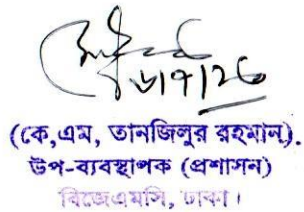 ৬/৭/২৬
(কে,এম, তানজিলুর রহমান).
উপ-ব্যবস্থাপক (প্রশাসন)
বিজেএমসি, ঢাকা।